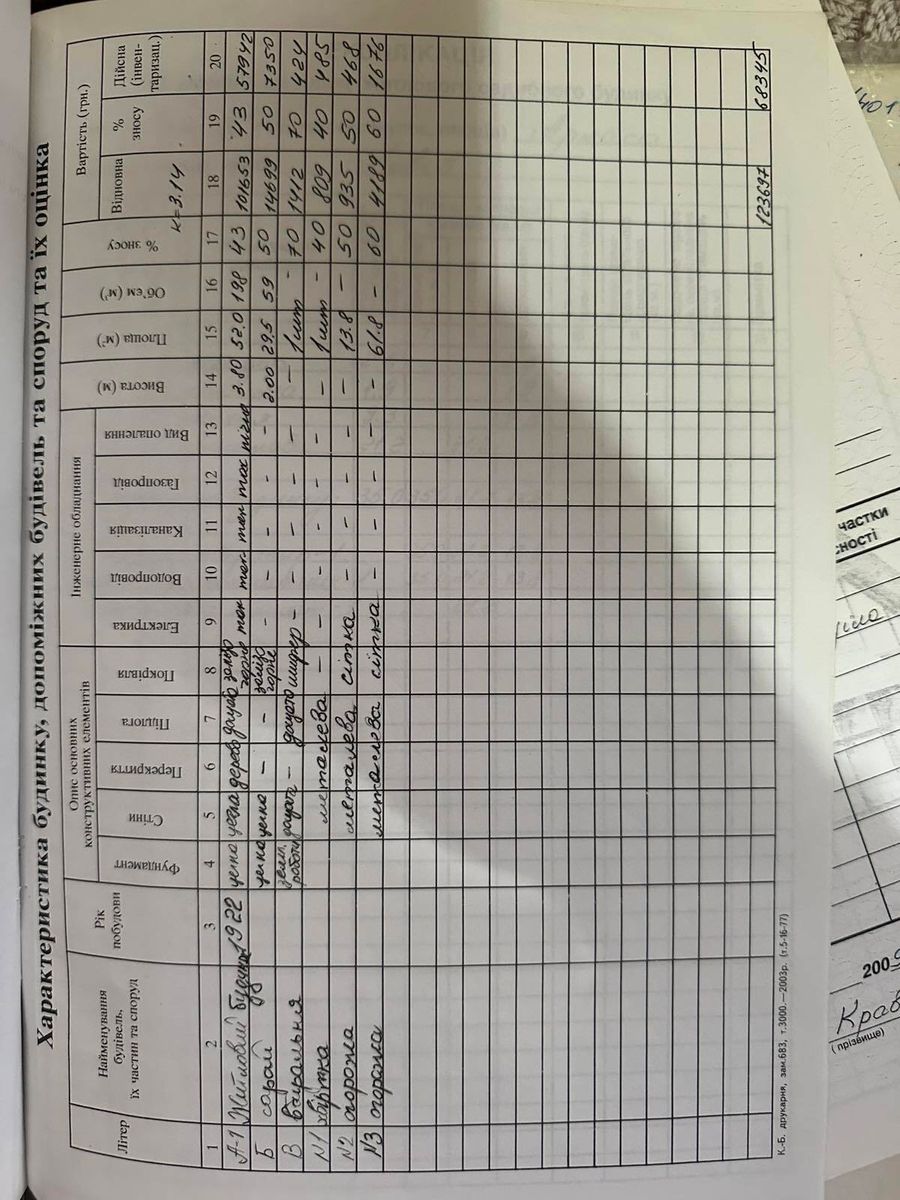 Характеристика будинку, допоміжних будівель та споруд та їх оцінка
Літер
Найменування будівель, їх частин та споруд
Рік побудови
Опис основних конструктивних елементів
Інженерне обладнання
Вартість (грн.)
Фундамент
Стіни
Перекриття
Підлога
Покрівля
Електрика
Водопровід
Каналізація
Газопровід
Вид опалення
Висота (м)
Площа (м²)
Об'єм (м³)
% зносу
Відновна
% зносу
Дійсна (інвен-таризац.)
к=3.14
1 2 3 4 5 6 7 8 9 10 11 12 13 14 15 16 17 18 19 20
А-1 Житловий будинок 1922 цегла цегла дерево дощата залізо горне так так так так пічне 3.80 52.0 198 43 101653 43 57942
Б сарай цегла цегла - - залізо горне - - - - - 2.00 29.5 59 50 14699 50 7350
В вбиральня земл. роботи дощата - дощата шифер - - - - - - 1шт - 70 1412 70 424
N1 хвіртка металева - - - - - - - 1шт - 40 809 40 485
N2 огорожа металева сітка - - - - - - 13.8 - 50 935 50 468
N3 огорожа металева сітка - - - - - - 61.8 - 60 4189 60 1676
123697 68345
К.-Б. друкарня, зам.683, т.3000.—2003р. (т.5-16-77)
частки
200
Крав
(прізвище)